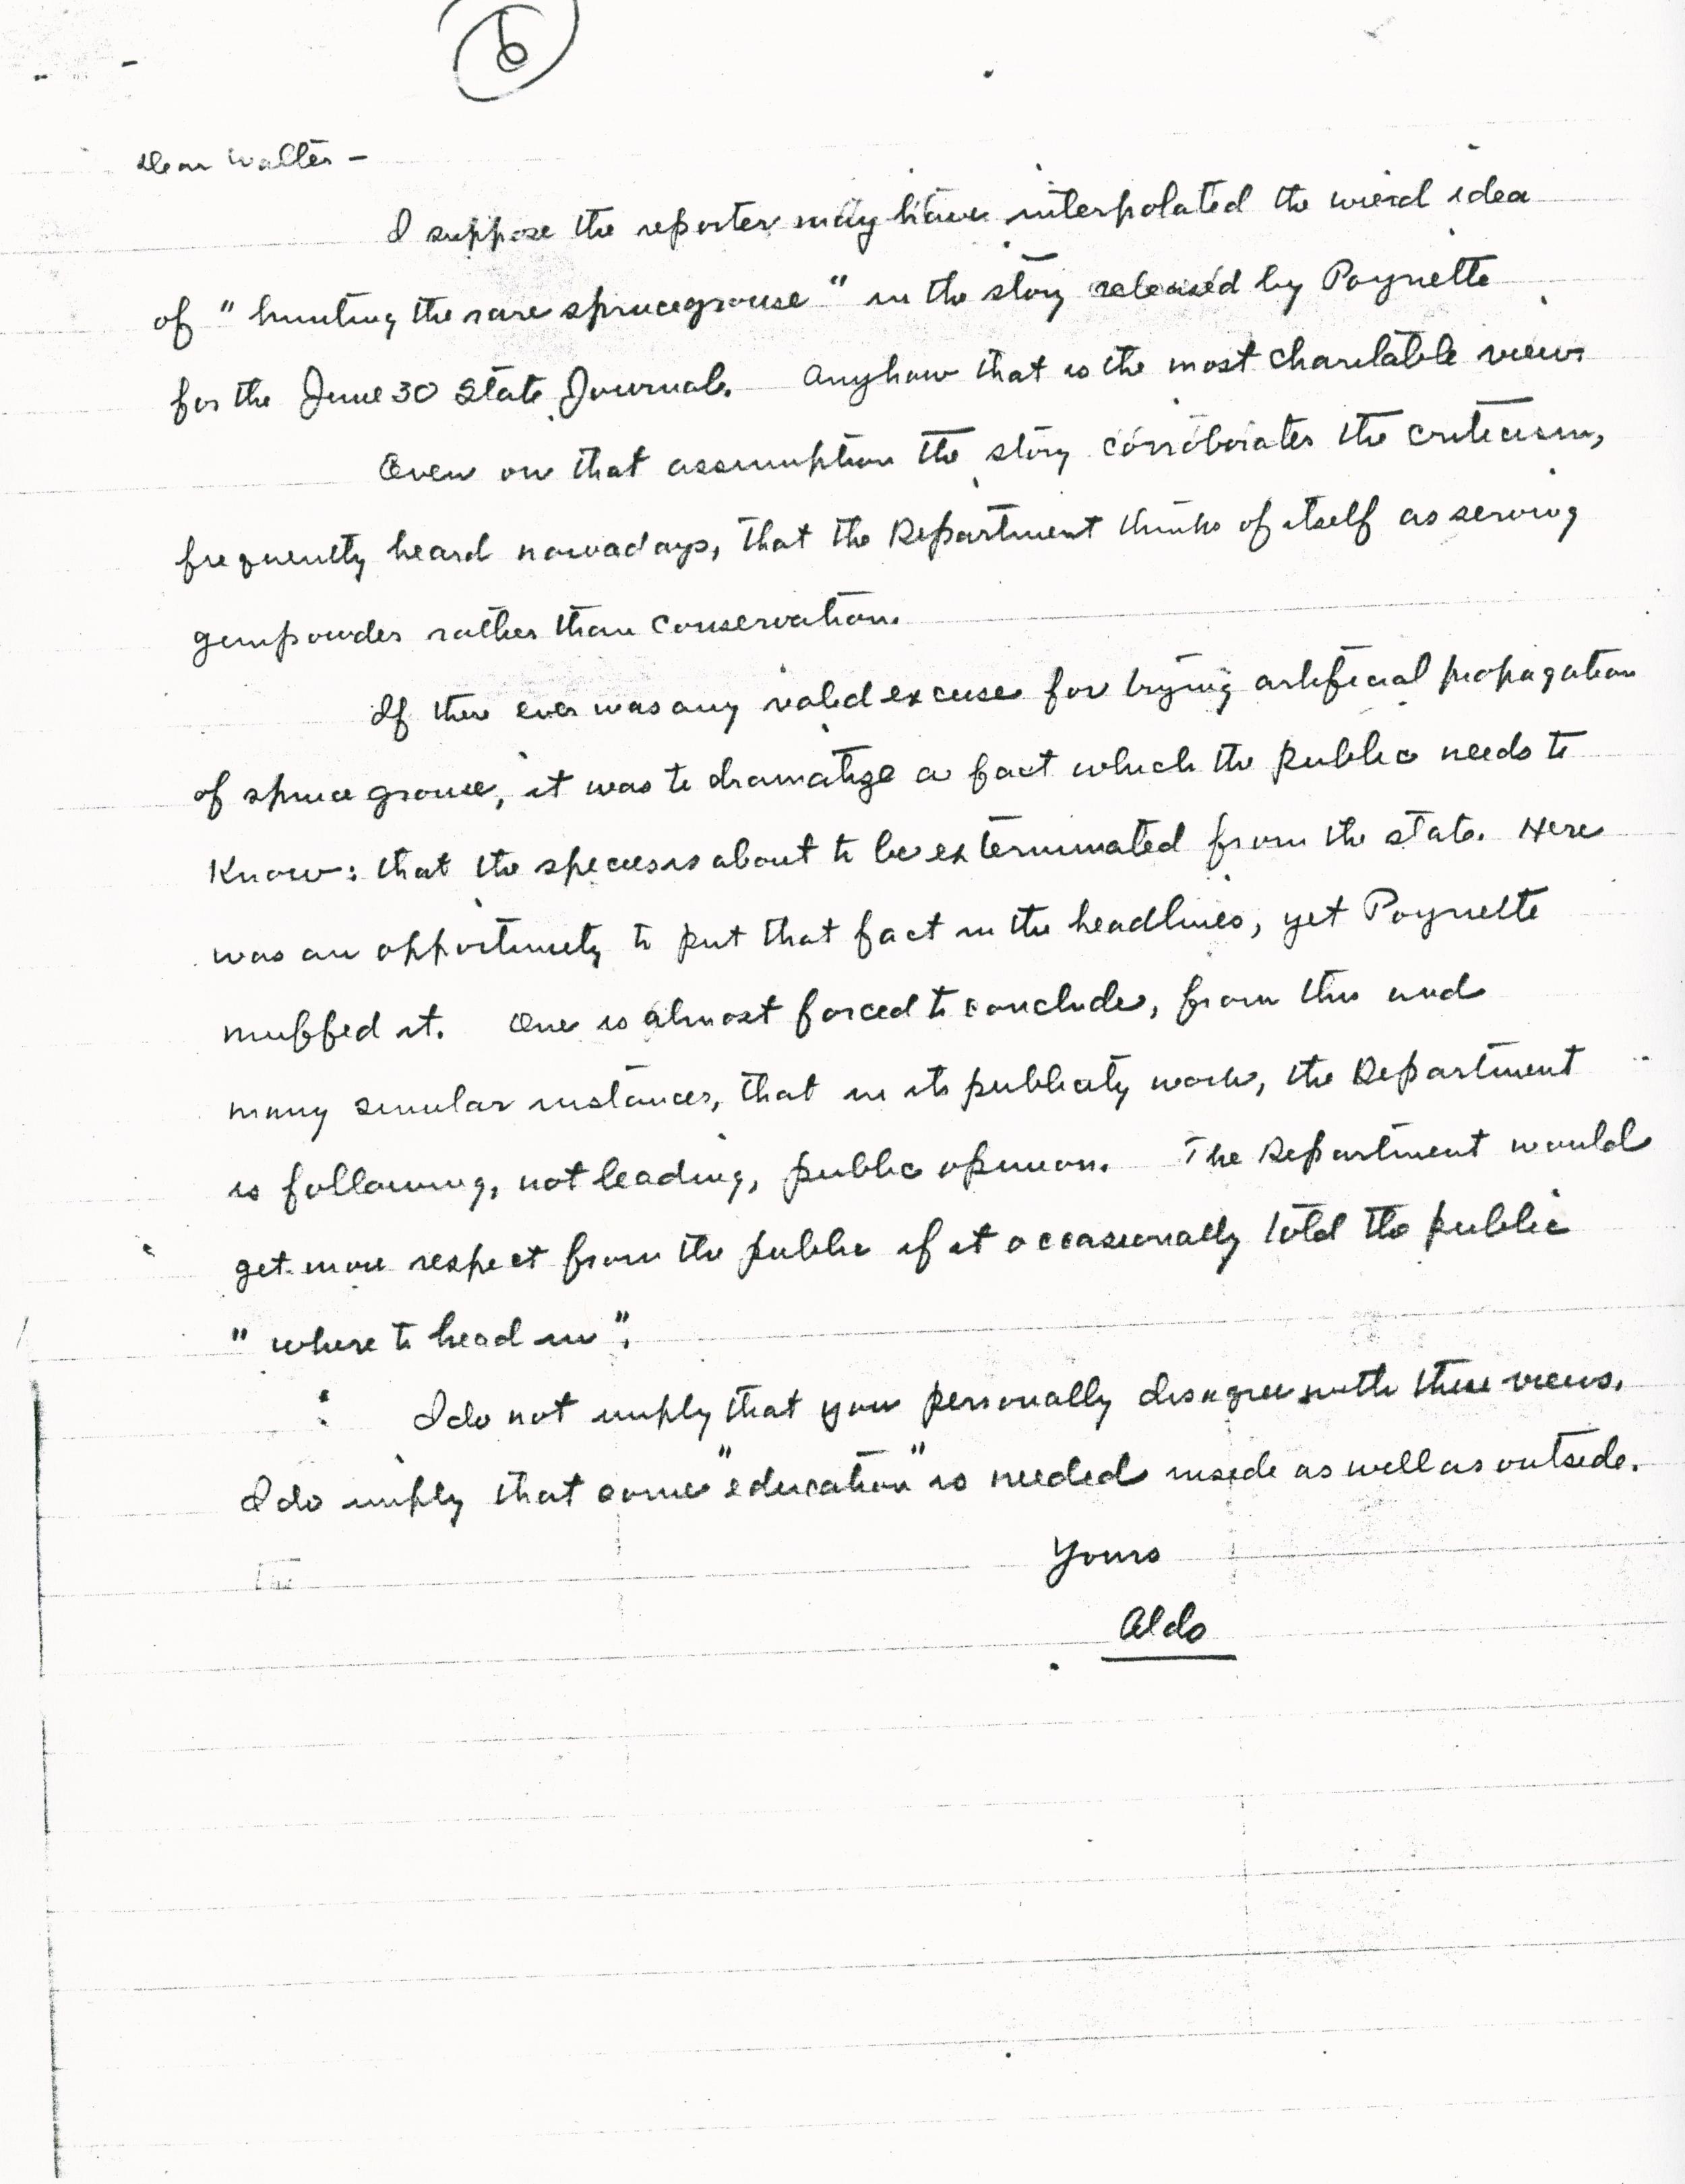 6
Dear Walter –
I suppose the reporter may have interpolated the wierd idea
of "hunting the rare spruce grouse" in the story released by Poynette
for the June 30 State Journal. Anyhow that is the most charitable view.
Even on that assumption the story corroborates the criticism,
frequently heard nowadays, that the Department thinks of itself as serving
gunpowder rather than conservation.
If there ever was any valid excuse for trying artificial propagation
of spruce grouse, it was to dramatize a fact which the public needs to
know: that the species is about to be exterminated from the state. Here
was an opportunity to put that fact in the headlines, yet Poynette
muffed it. One is almost forced to conclude, from this and
many similar instances, that in its publicity work, the Department
is following, not leading, public opinion. The Department would
get more respect from the public if it occasionally told the public
"where to head in".
I do not imply that you personally disagree with these views.
I do imply that some "education" is needed inside as well as outside.
Yours
Aldo